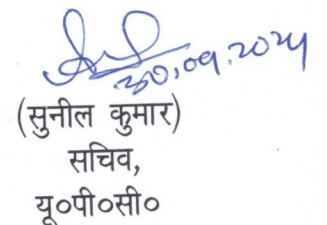 30.09.2024
(सुनील कुमार)
सचिव,
यू०पी०सी०